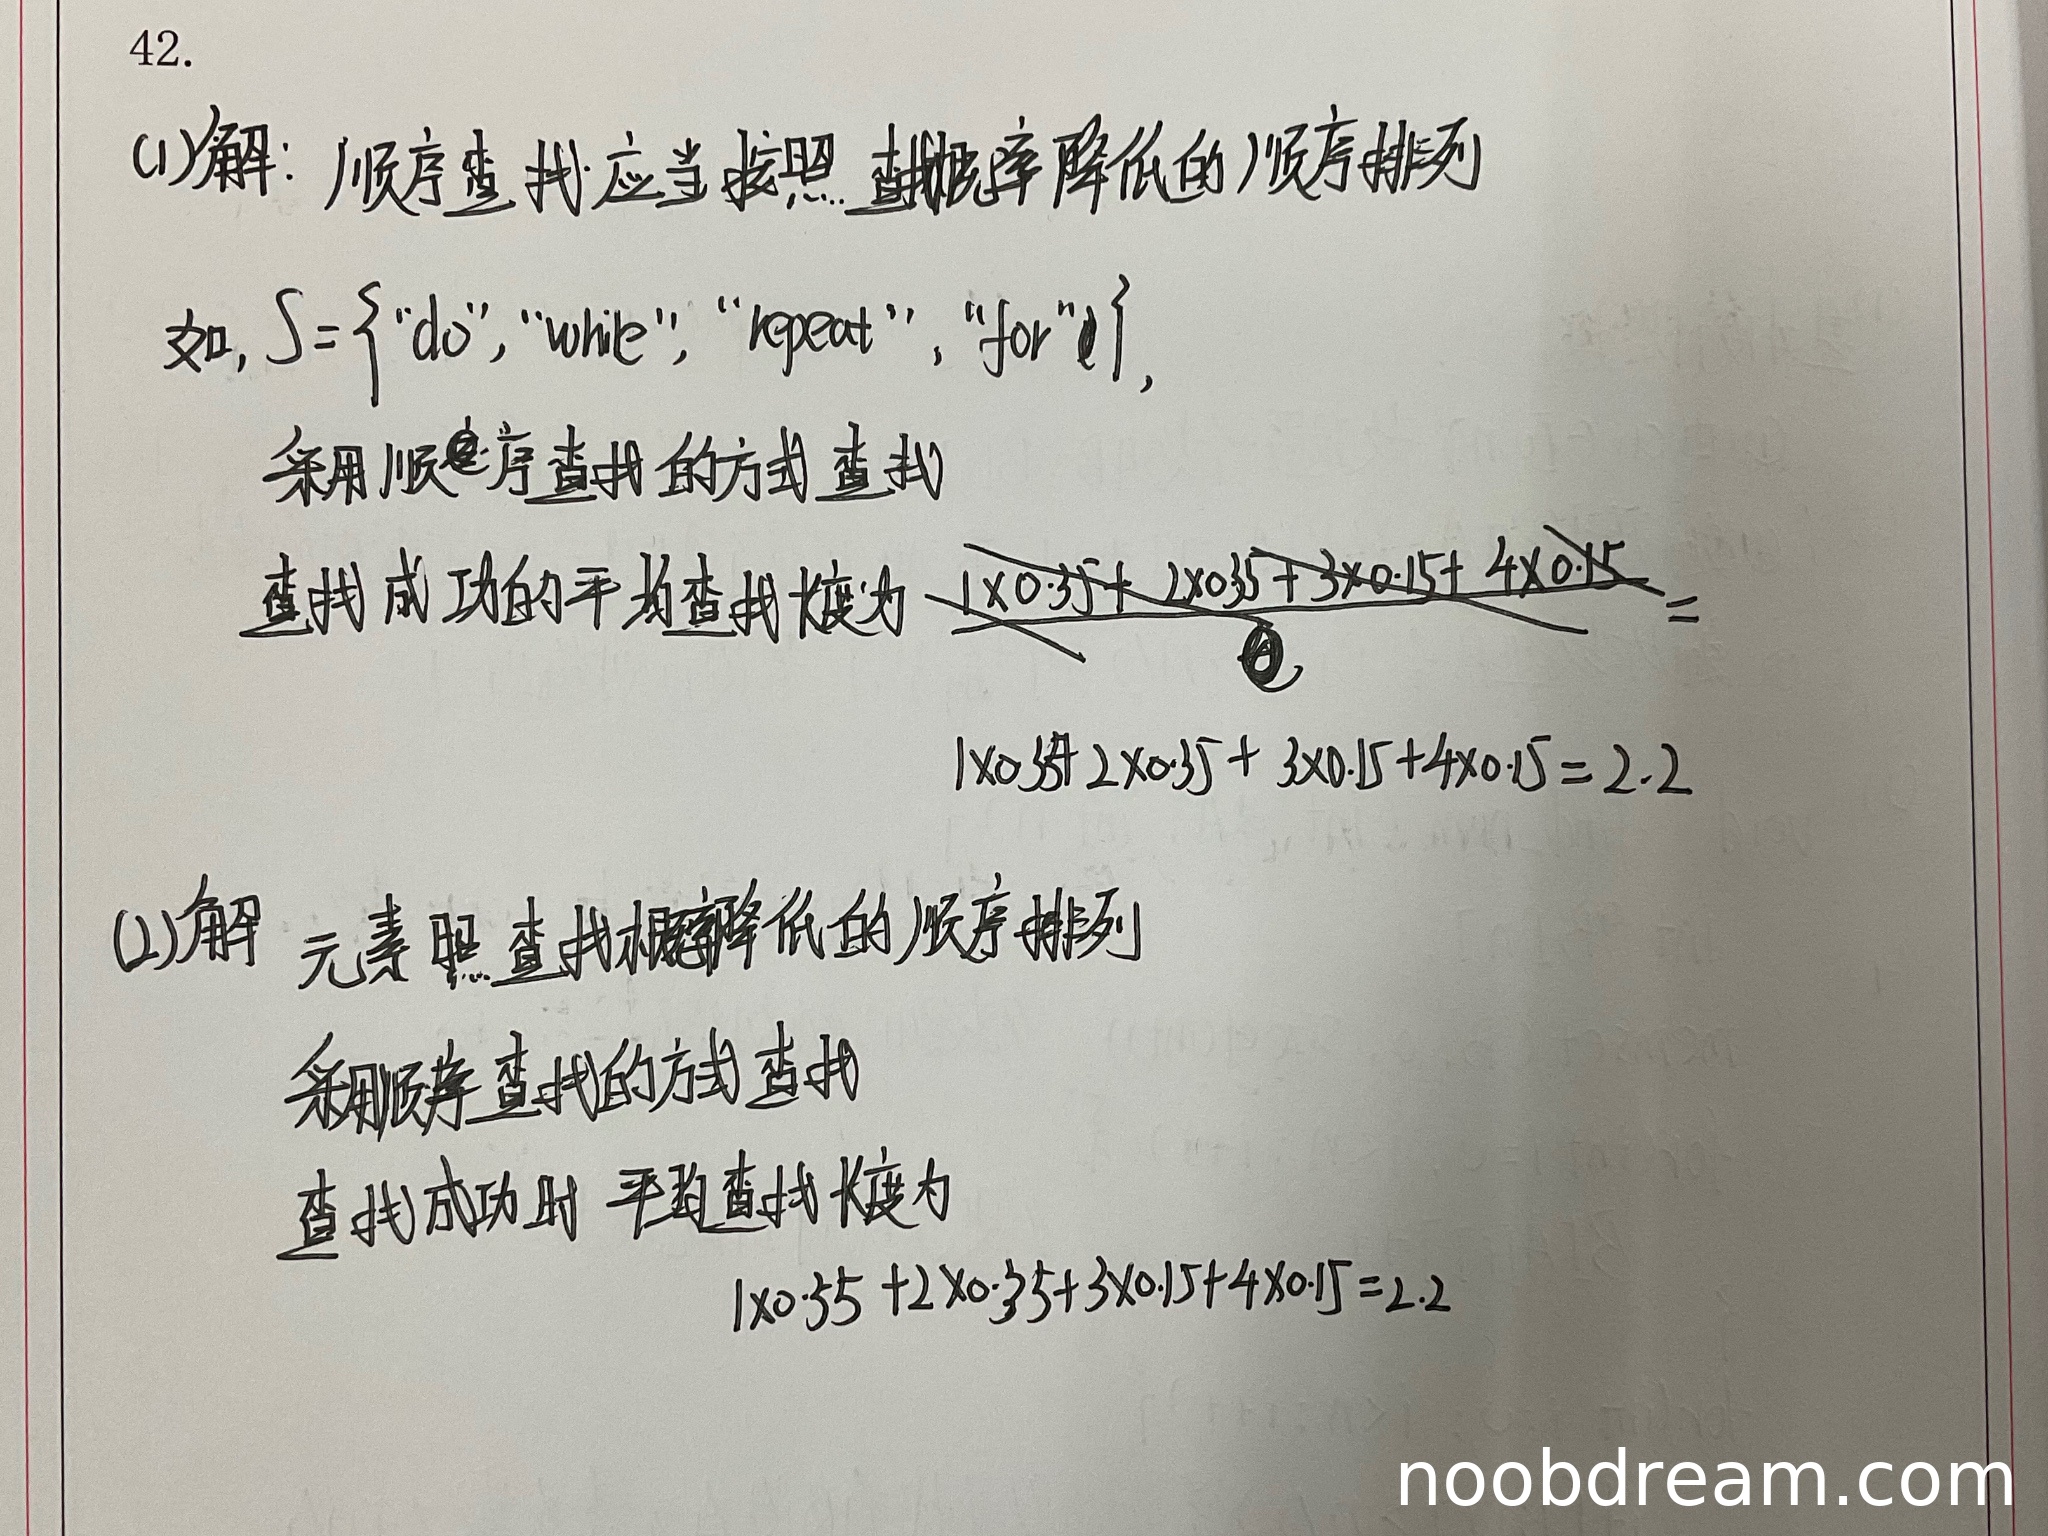 42.
(1)解: 顺序查找应当按照查找概率降低的顺序排列
如, S={"do", "while", "repeat", "for"},
采用顺序查找的方式查找
查找成功的平均查找长度为 1×0.35+ 2×0.35+3×0.15+ 4×0.15 =
1×0.35+2×0.35+ 3×0.15+4×0.15=2.2
(2)解 元素照查找概率降低的顺序排列
采用顺序查找的方式查找
查找成功时 平均查找长度为
1×0.35+2×0.35+3×0.15+4×0.15=2.2
noobdream.com